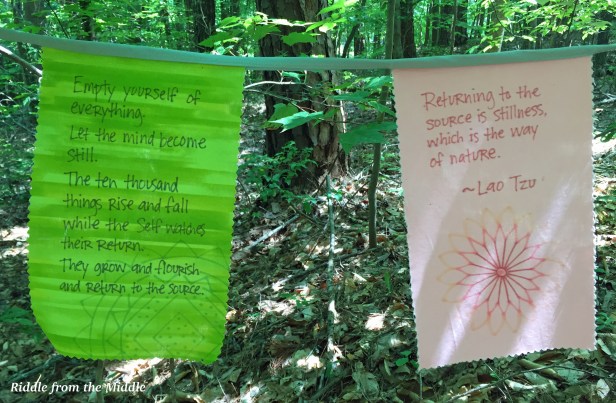 Empty yourself of
everything.
Let the mind become
still.
The ten thousand
things rise and fall
while the Self watches
their return.
They grow and flourish
and return to the source.
Returning to the
source is stillness,
which is the way
of nature.
~Lao Tzu
Riddle from the Middle